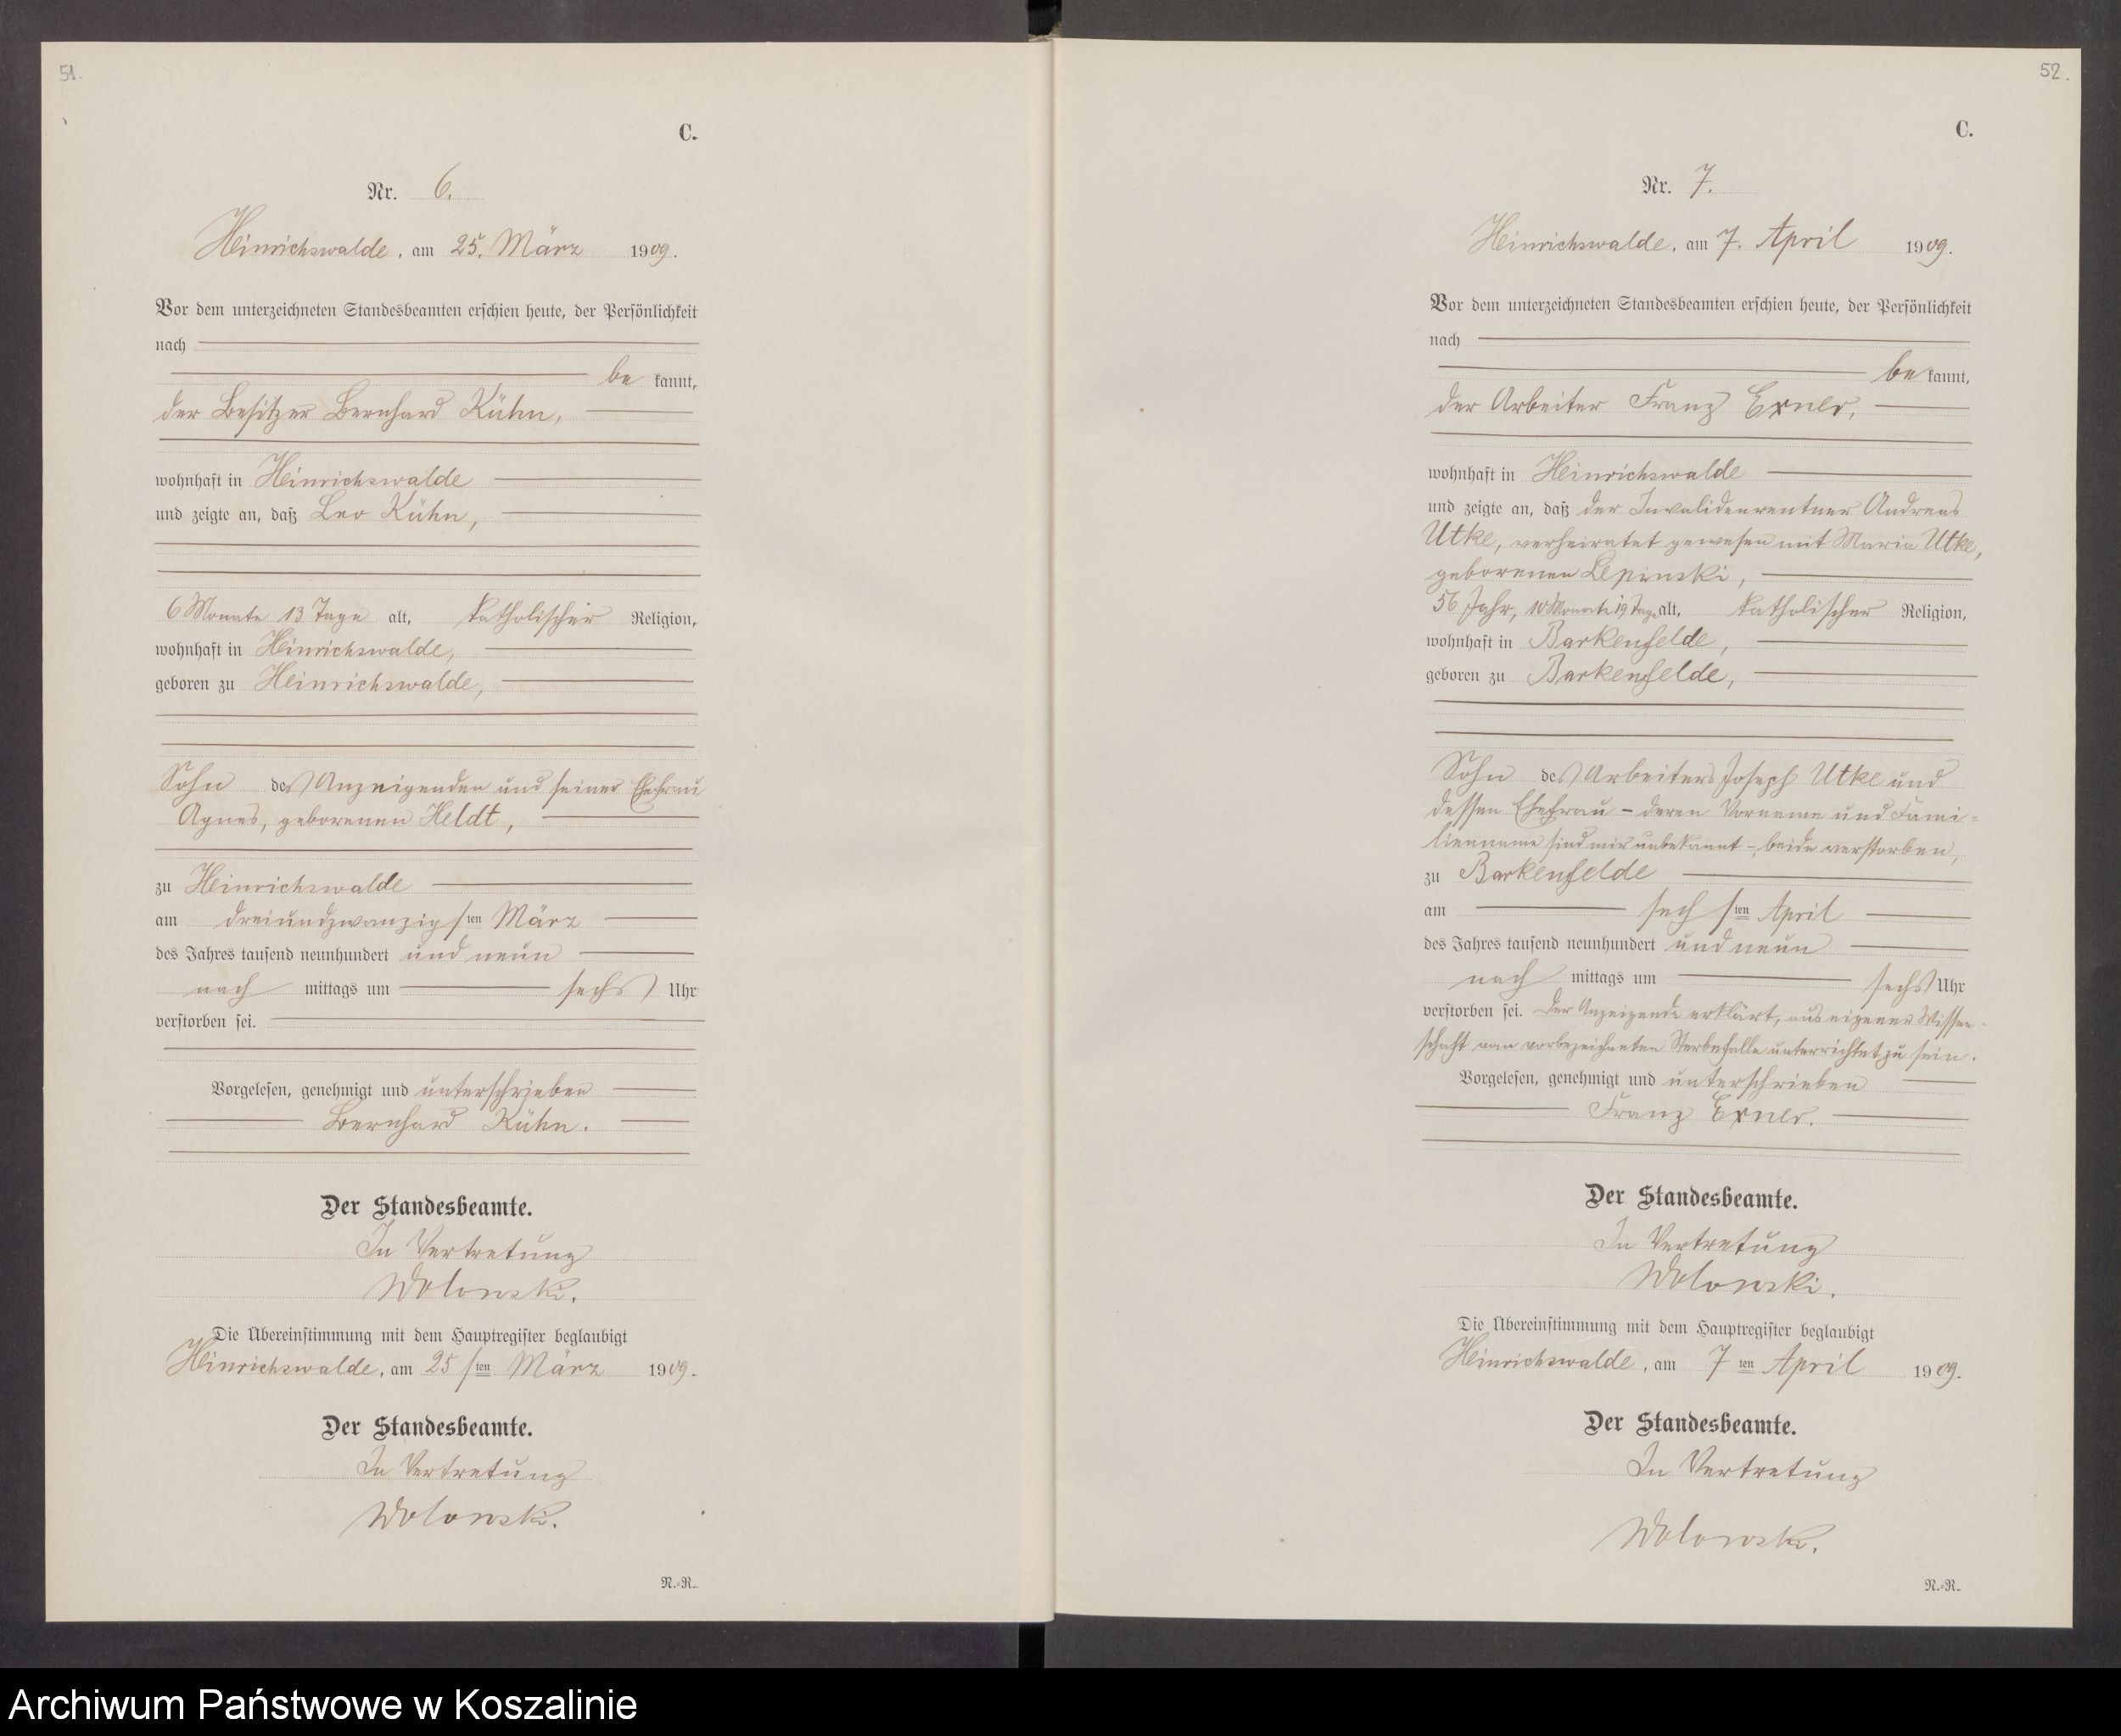 51.
C.
Nr. 6.
Heinrichswalde, am 25. März 1909.
Vor dem unterzeichneten Standesbeamten erschien heute, der Persönlichkeit
nach
be kannt,
der Besitzer Bernhard Kühn,
wohnhaft in Heinrichswalde
und zeigte an, daß Leo Kühn,
6 Monate 13 Tage alt, katholischer Religion,
wohnhaft in Heinrichswalde,
geboren zu Heinrichswalde,
Sohn des Anzeigenden und seiner Ehefrau
Agnes, geborenen Heldt,
zu Heinrichswalde
am dreiundzwanzigsten März
des Jahres tausend neunhundert und neun
nach mittags um sechs Uhr
verstorben sei.
Vorgelesen, genehmigt und unterschrieben
Bernhard Kühn.
Der Standesbeamte.
In Vertretung
Wolowski.
Die Übereinstimmung mit dem Hauptregister beglaubigt
Heinrichswalde, am 25sten März 1909.
Der Standesbeamte.
In Vertretung
Wolowski.
N.=R.
52.
C.
Nr. 7.
Heinrichswalde, am 7. April 1909.
Vor dem unterzeichneten Standesbeamten erschien heute, der Persönlichkeit
nach
be kannt,
der Arbeiter Franz Exner,
wohnhaft in Heinrichswalde
und zeigte an, daß der Invalidenrentner Andreas
Utke, verheiratet gewesen mit Maria Utke,
geborenen Lepinski,
56 Jahr, 10 Monate 19 Tage alt, katholischer Religion,
wohnhaft in Barkenfelde,
geboren zu Barkenfelde,
Sohn des Arbeiters Joseph Utke und
dessen Ehefrau – deren Vorname und Fami=
lienname sind mir unbekannt –, beide verstorben,
zu Barkenfelde
am sechsten April
des Jahres tausend neunhundert und neun
nach mittags um sechs Uhr
verstorben sei. Der Anzeigende erklärt, aus eigener Wissen=
schaft von vorbezeichneten Sterbefalle unterrichtet zu sein.
Vorgelesen, genehmigt und unterschrieben
Franz Exner.
Der Standesbeamte.
In Vertretung
Wolowski.
Die Übereinstimmung mit dem Hauptregister beglaubigt
Heinrichswalde, am 7ten April 1909.
Der Standesbeamte.
In Vertretung
Wolowski.
N.=R.
Archiwum Państwowe w Koszalinie